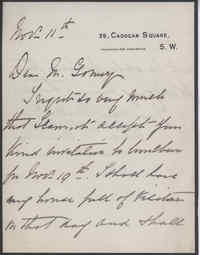 Nov. 11th
39, Cadogan Square,
S. W.
Dear Mr. Gomery
I regret so very much
that I cannot accept your
kind invitation to luncheon
for Nov. 19th. I shall have
my house full of visitors
on that day and shall